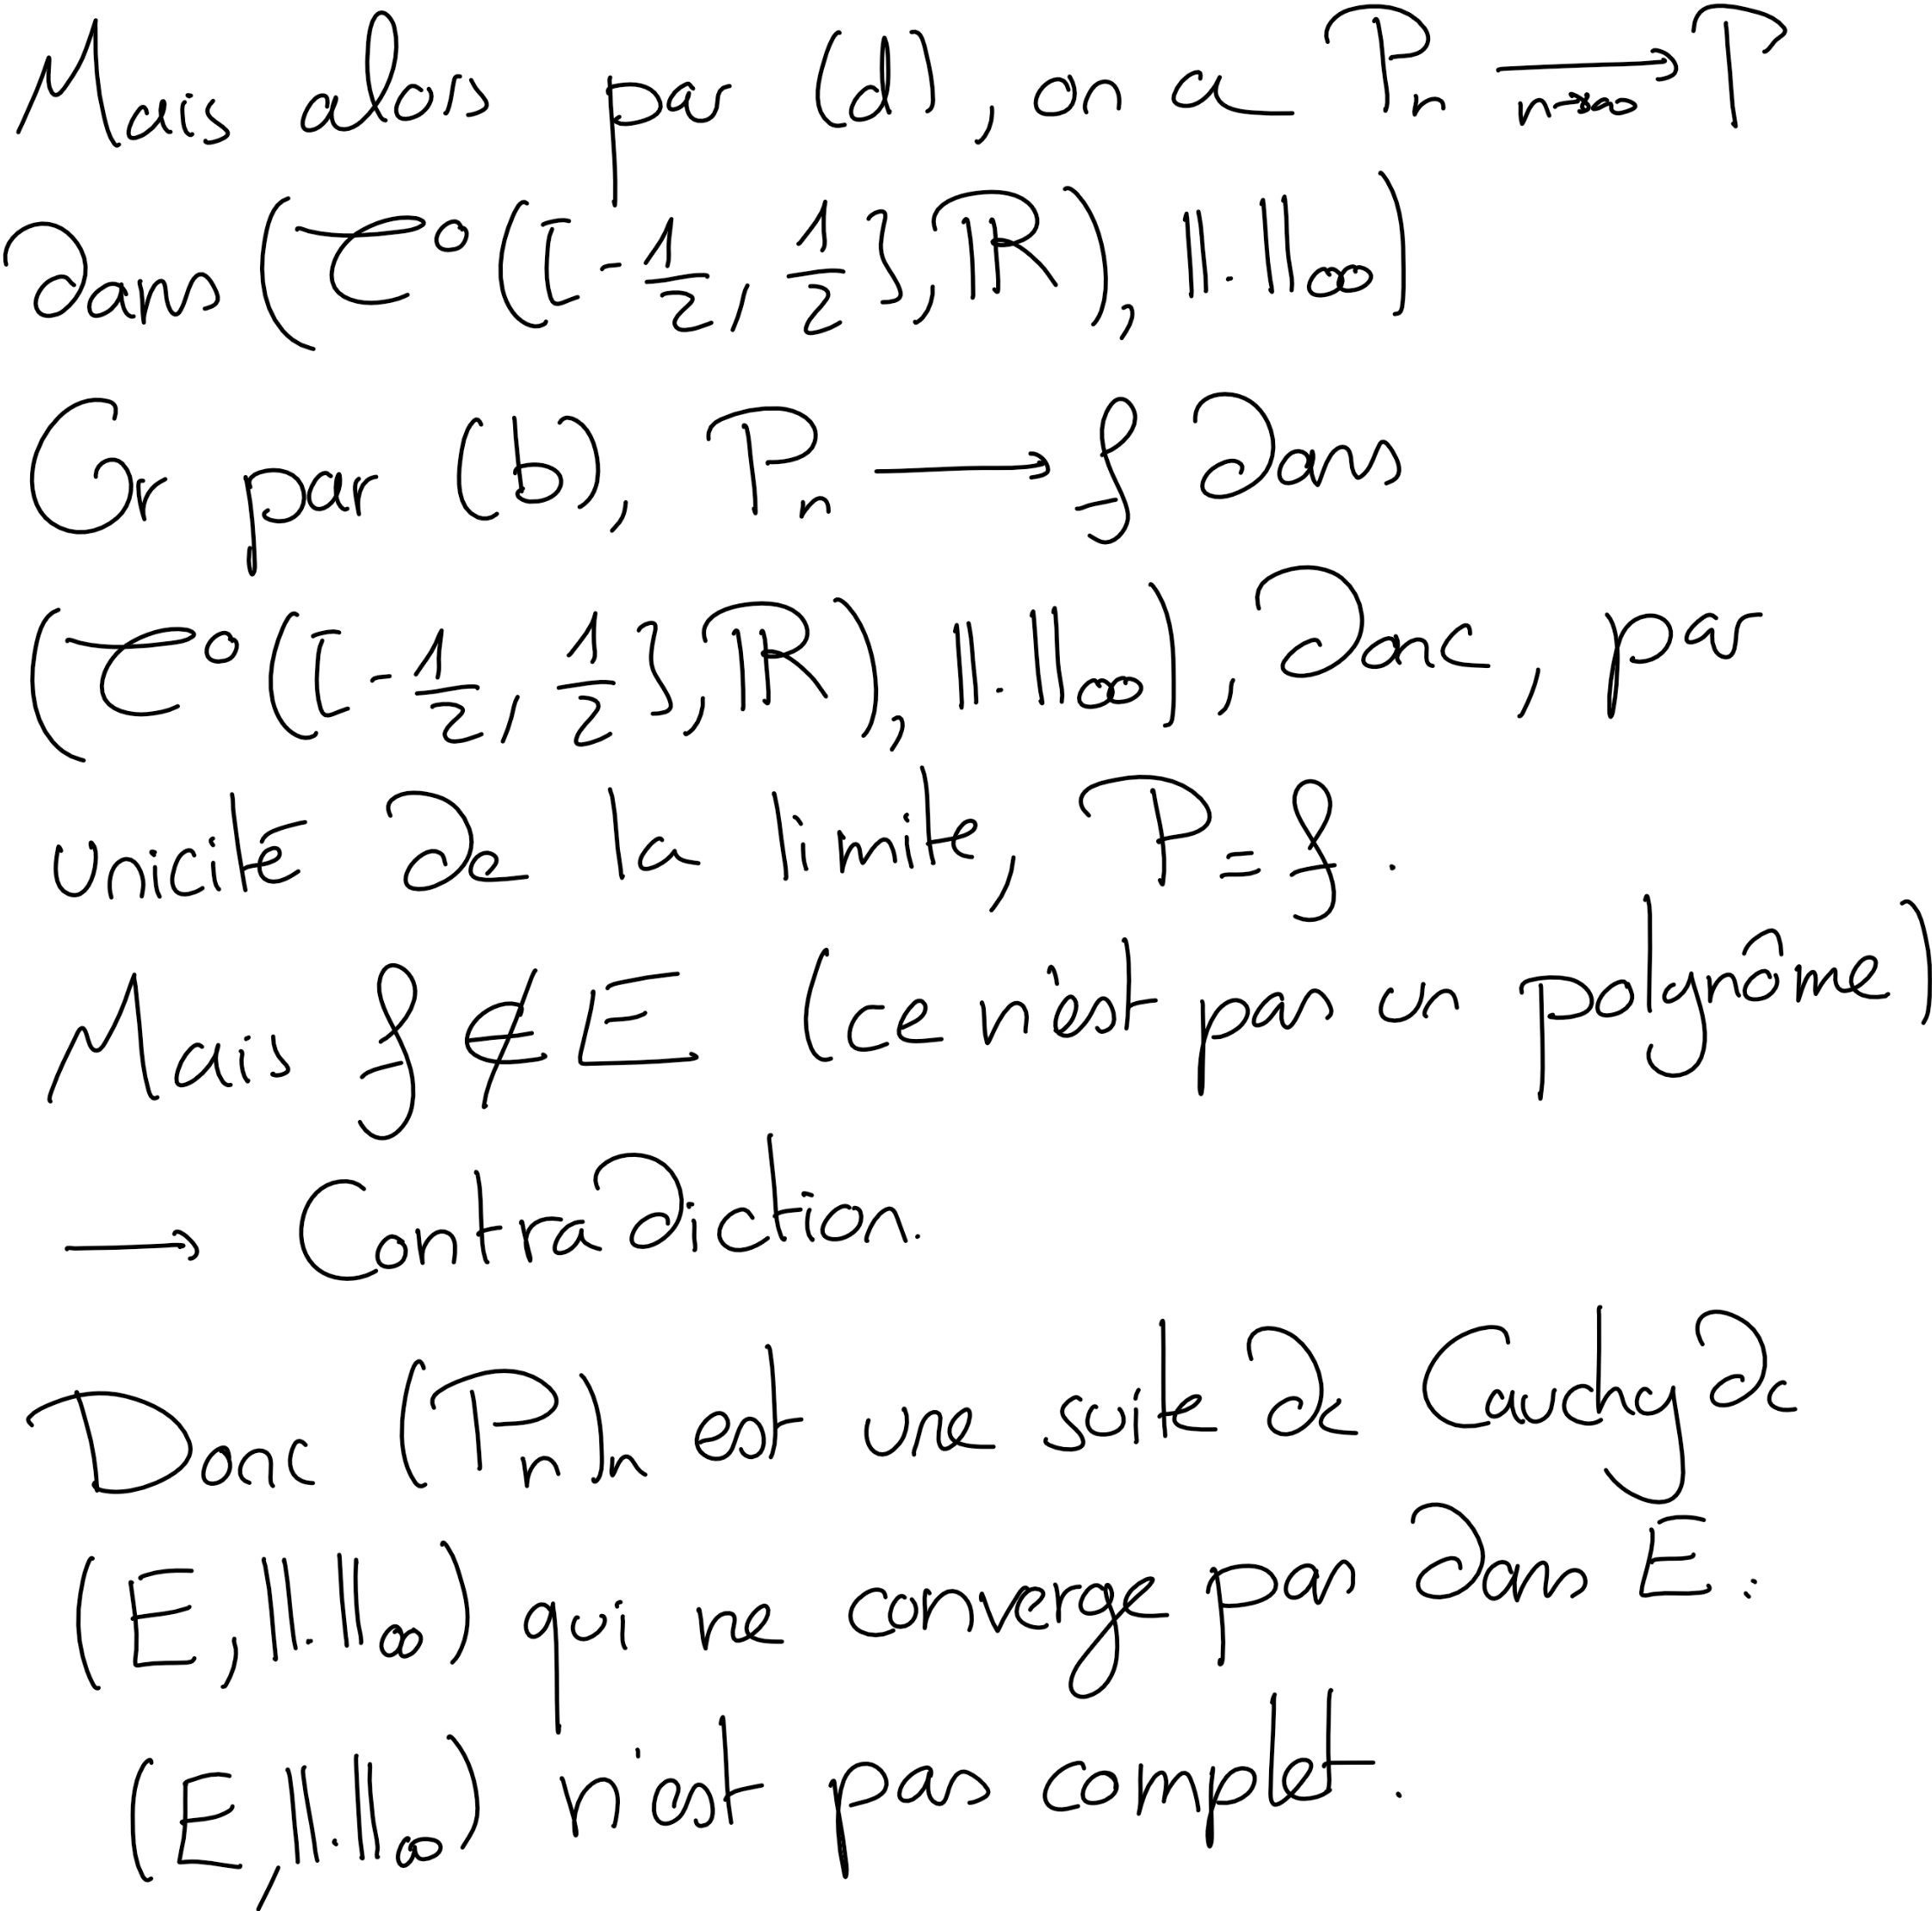 Mais alors par (d), on a Pn ⟶ P n→∞
dans (C⁰([-1/2, 1/2], R), ||.||∞)
Or par (b), Pn ⟶ f dans
(C⁰([-1/2, 1/2], R), ||.||∞). Donc, par
unicité de la limite, P = f.
Mais f ∉ E (ce n'est pas un polynôme)
→ Contradiction.
Donc (Pn)n est une suite de Cauchy de
(E, ||.||∞) qui ne converge pas dans E :
(E, ||.||∞) n'est pas complet.